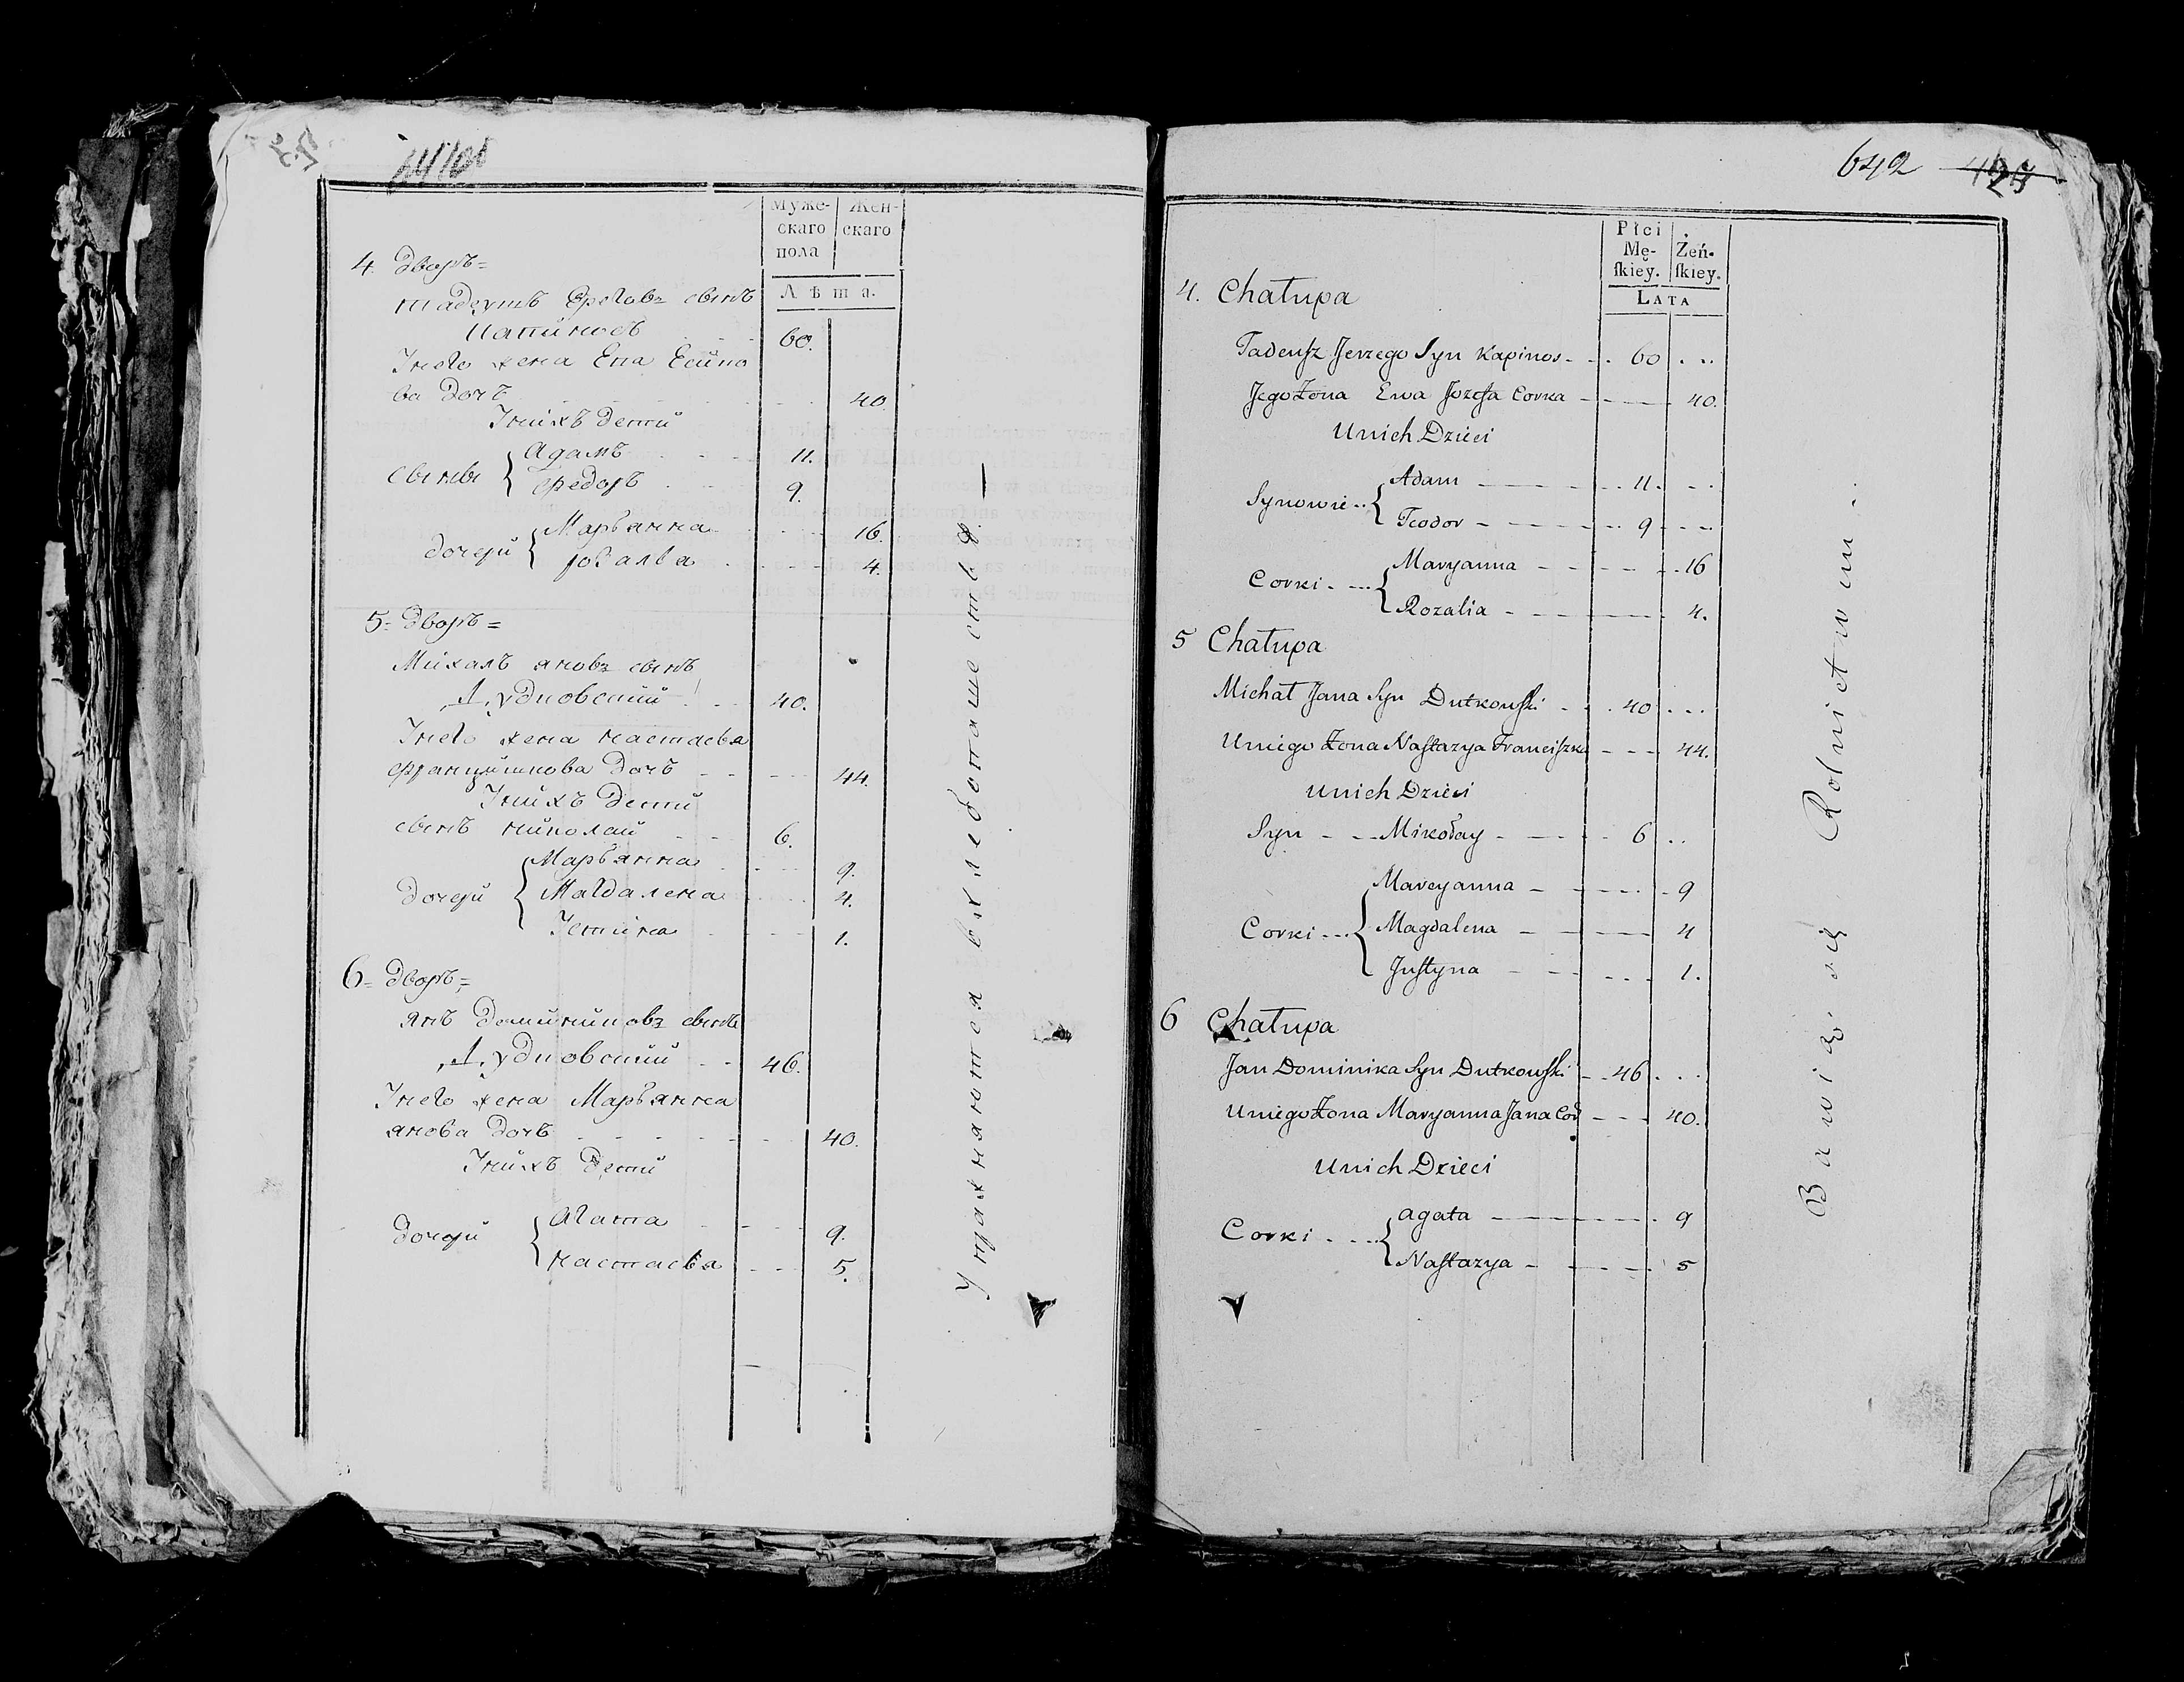 Муже-
скаго
пола
Жен-
скаго
Лѣта.
4. Дворъ=
Тадеушъ Ерѣговъ сынъ
Капиносъ 60.
У него жена Ева Есипо
ва дочь 40.
У нихъ дети
сыны Адамъ 11.
Федоръ 9.
дочери Марьянна 16.
розалія 4.
5= Дворъ=
Михалъ яновъ сынъ
Дудковскій 40.
У него жена настасья
францишкова дочь 44.
У нихъ дети
сынъ николай 6.
дочери Марьянна 9.
Магдалена 4.
Устина 1.
6= Дворъ=
янъ Доминиковъ сынъ
Дудковскій 46.
У него жена Марьянна
янова дочь 40.
У нихъ дети
дочери Агата 9.
настасья 5.
Упражняются въ хлебопашестве
642
Płci
Mę-
ſkiey.
Żeń-
ſkiey.
LATA
4. Chałupa
Tadeuſz Jerzego Syn Kapinos 60
Jego Żona Ewa Jozefa Corka 40.
U nich Dzieci
Synowie Adam 11.
Teodor 9
Corki Maryanna 16
Rozalia 4.
5 Chałupa
Michał Jana Syn Dutkowſki 40
U niego Żona Naſtazya Franciſzka 44.
U nich Dzieci
Syn Mikołay 6
Corki Maryanna 9
Magdalena 4
Juſtyna 1.
6 Chałupa
Jan Dominika Syn Dutkowſki 46
U niego Żona Maryanna Jana Cor 40.
U nich Dzieci
Corki agata 9
Naſtazya 5
Bawią się Rolnictwem